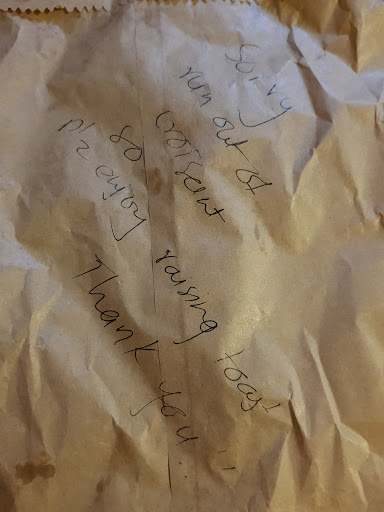 Sorry
run out of
croissent
so
plz enjoy
raising toast
Thank you!!